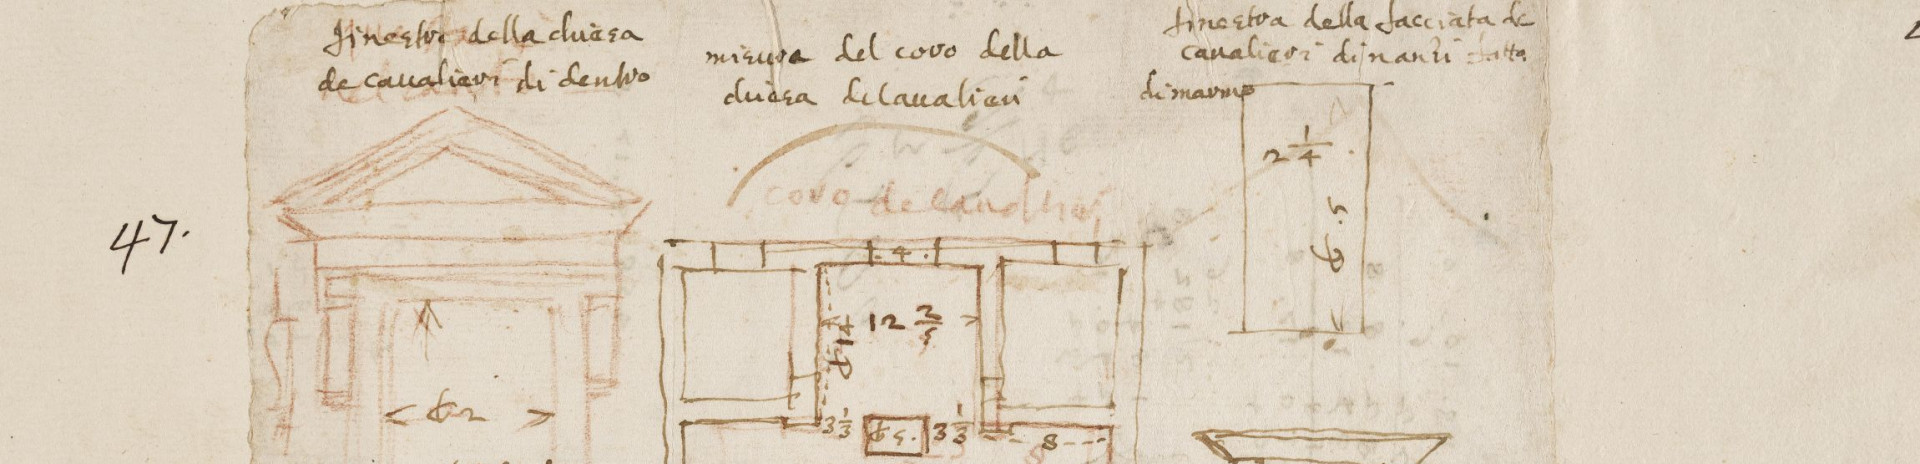 finestre della chiesa
de cavalieri di dentro
misura del coro della
chiesa de cavalieri
finestra della facciata de
cavalieri dinanzi fatta
di marmo
coro de cavalieri
47.
2 1/4
4
12 2/5
3 1/3
3 1/3
8